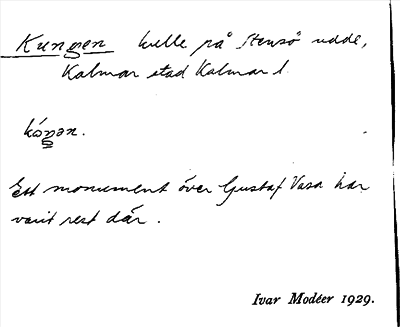 Kungen kulle på Stensö udde,
Kalmar stad Kalmar l.
kóŋən.
Ett monument över Gustaf Vasa har
varit rest där.
Ivar Modéer 1929.